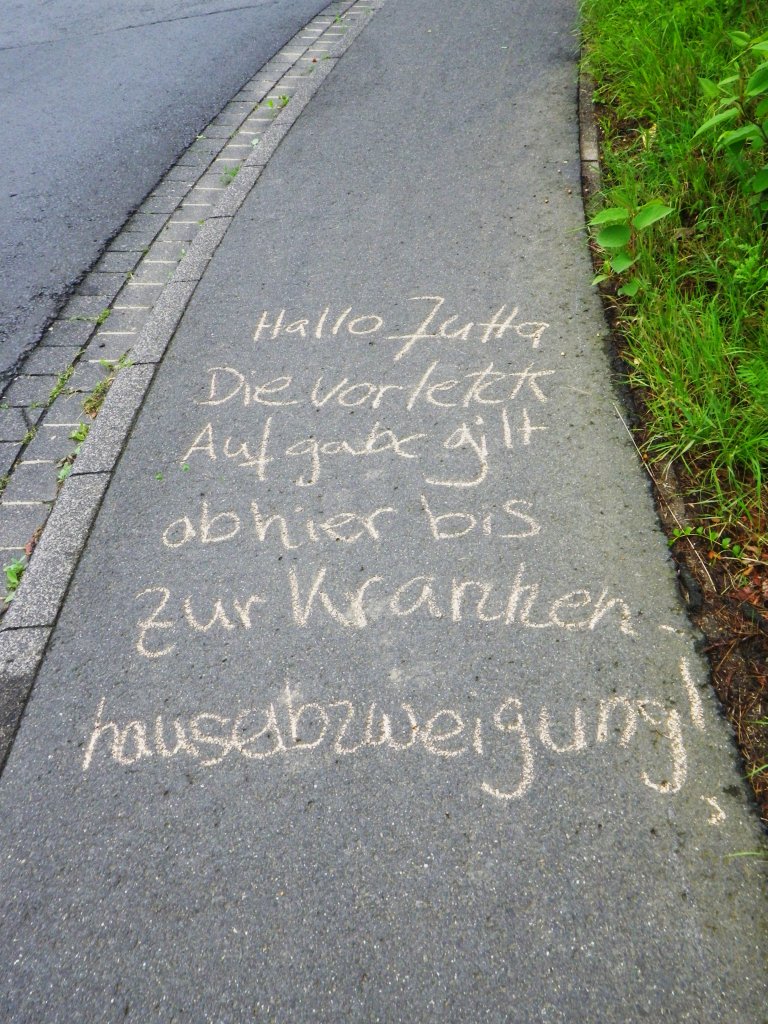 Hallo Jutta
Die vorletzte
Aufgabe gilt
ab hier bis
zur Kranken-
hausabzweigung!